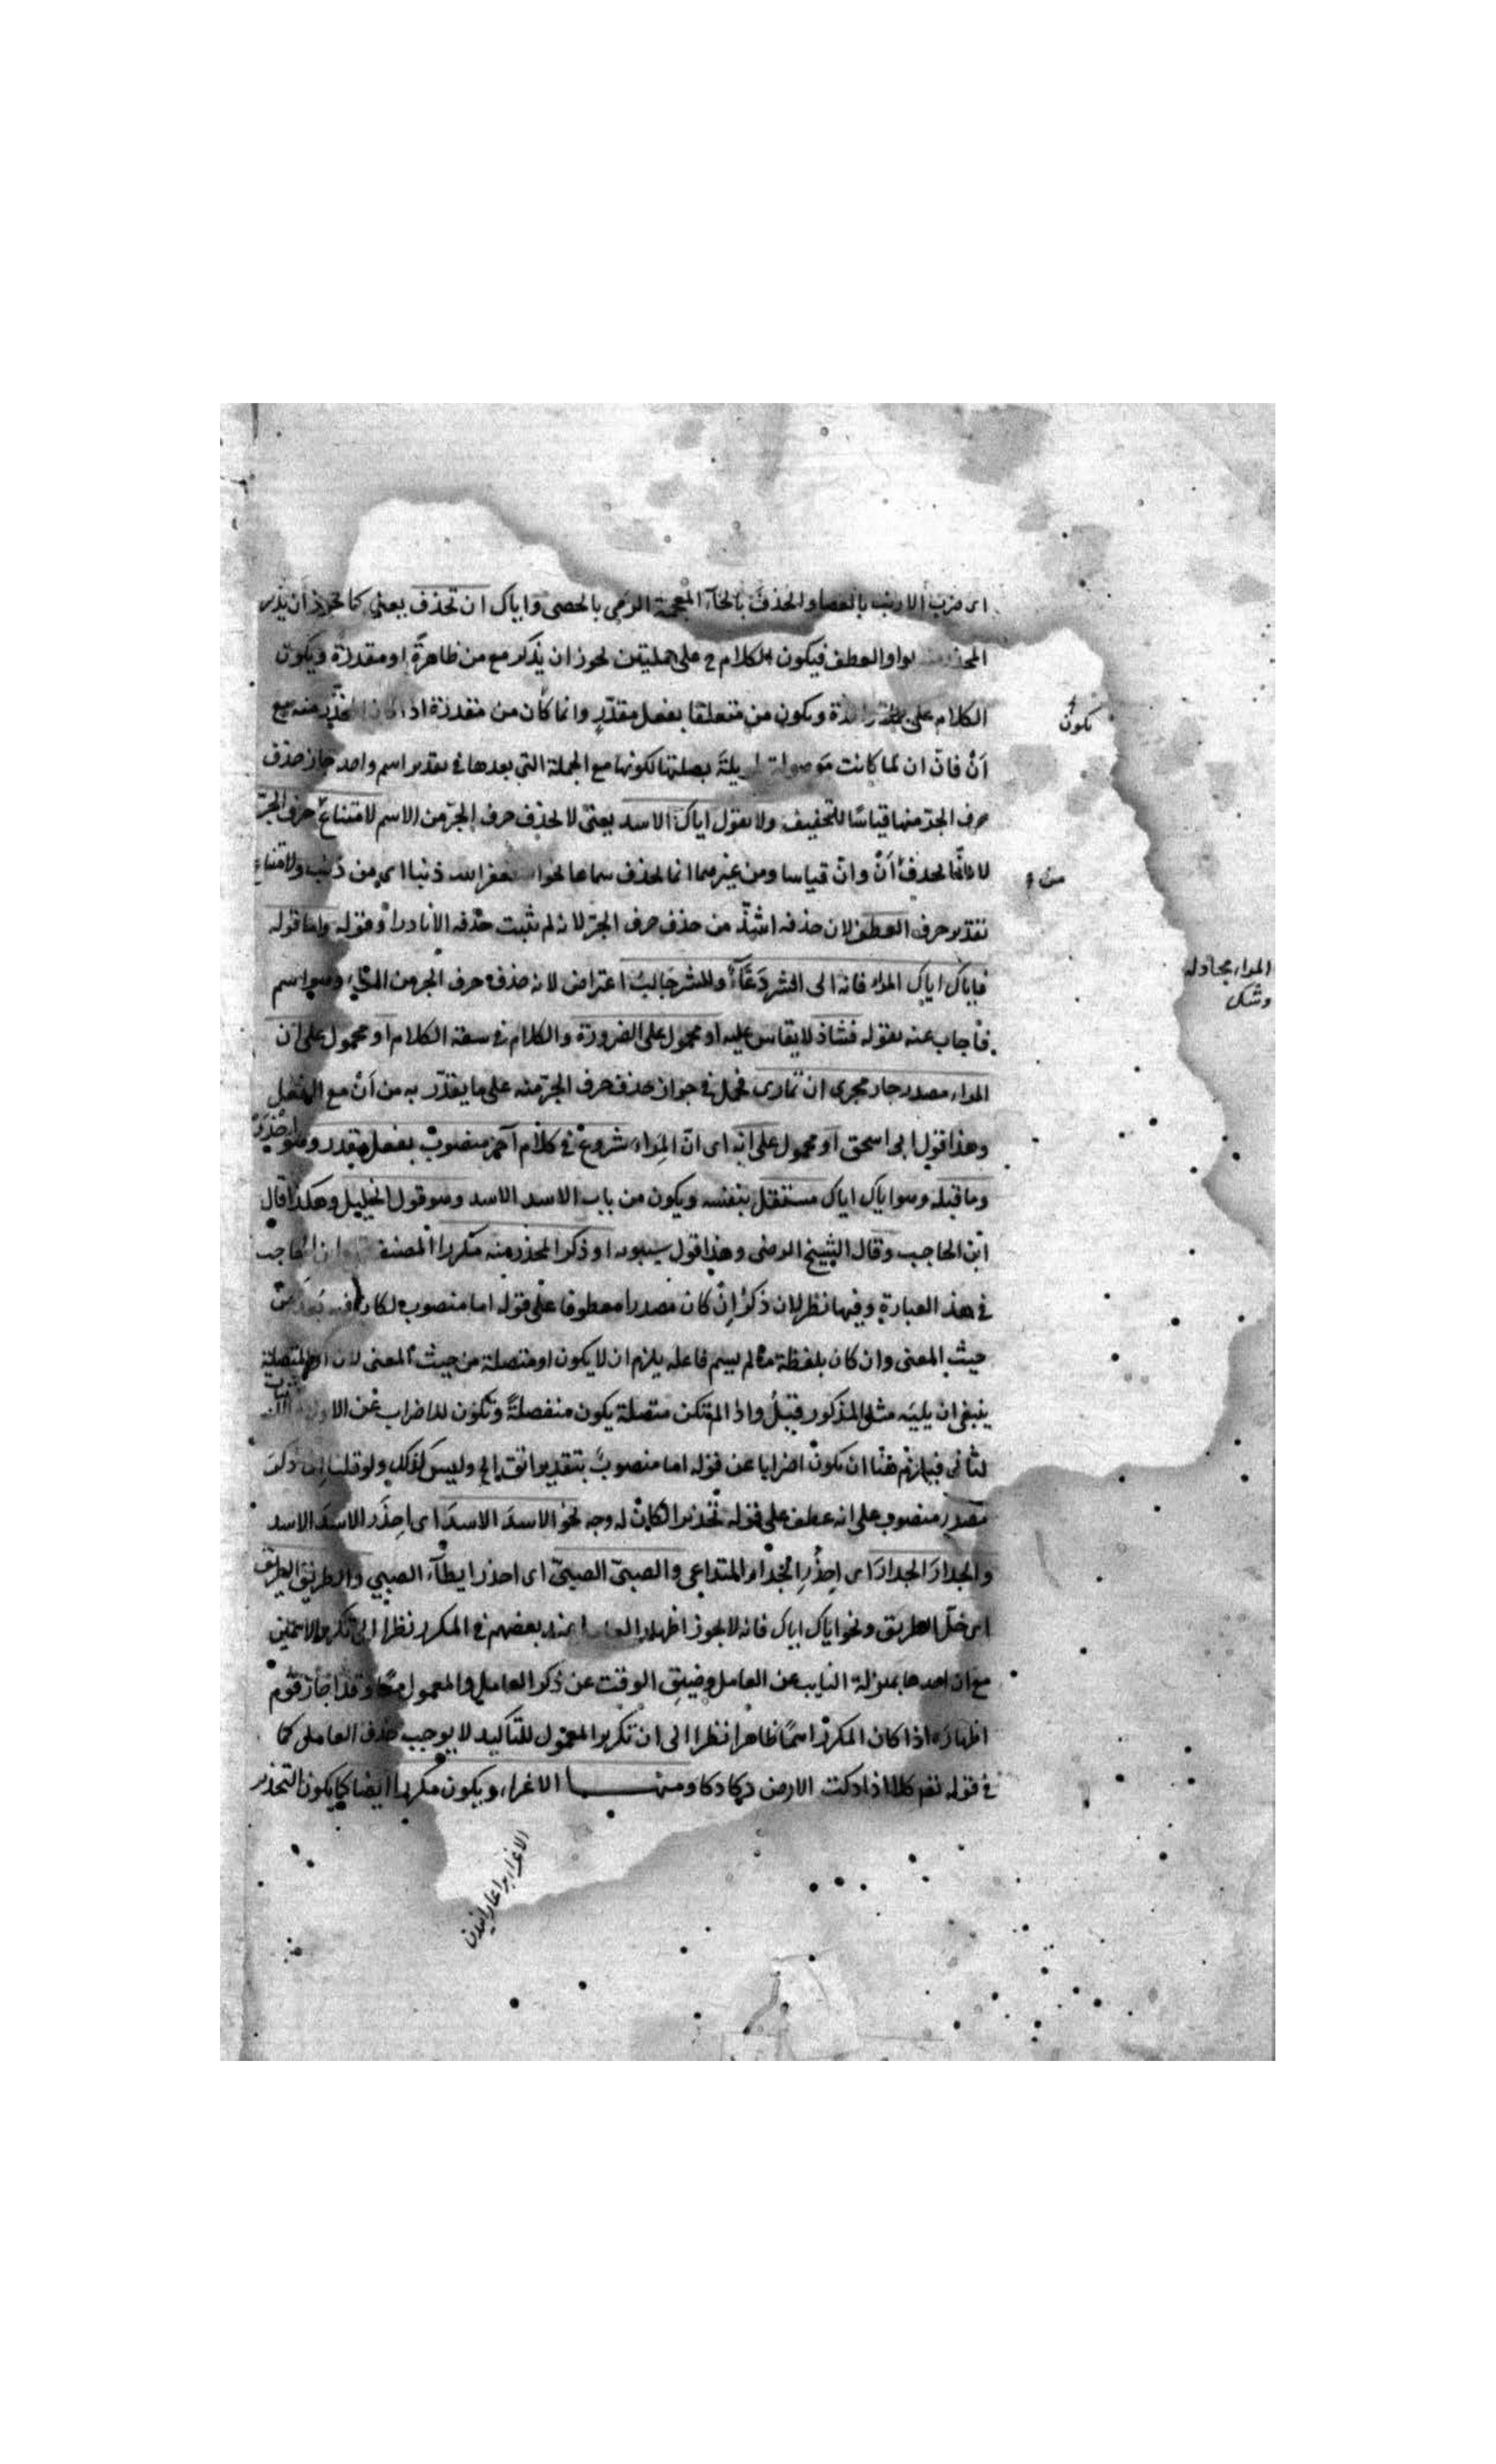 اى ضرب الارنب بالعصا والحذف بالخاء المعجمة الرمى بالحصى واياك ان تحذف يعنى كما يجوز ان يذكر
المحذر منه بواو العطف فيكون الكلام ح على جملتين يجوز ان يذكر مع من ظاهرة او مقدرة ويكون
الكلام على واحدة ويكون من متعلقا بفعل مقدر وانما كان من مقدرة اذا كان المحذر منه مع
أن فان ان لما كانت موصولة طويلة بصلتها لكونها مع الجملة التى بعدها فى تقدير اسم واحد جاز حذف
حرف الجر منها قياسا للتخفيف ولا تقول اياك الاسد يعنى لا يحذف حرف الجر من الاسم لامتناع حرف الجر
لانما يحذف أن وان قياسا ومن غيرهما انما يحذف سماعا نحو استغفر الله ذنبا اى من ذنب ولامتناع
تقدير حرف العطف لان حذفه اشذ من حذف حرف الجر لانه لم يثبت حذفه الا نادرا وقوله واما قوله
فاياك اياك المراء فانه الى الشر دعّاء وللشر جالب اعتراض لانه حذف حرف الجر من المراء وهو اسم
فاجاب عنه بقوله فشاذ لا يقاس عليه او محمول على الضرورة والكلام فى سعة الكلام او محمول على ان
المراء مصدر جار مجرى ان تمارى فحمل فى جواز حذف حرف الجر منه على ما يقدر به من أن مع الفعل
وهذا قول ابى اسحق او محمول على انه اى ان المراء شروع فى كلام آخر منصوب بفعل مقدر وهو احذر
وما قبله وهو اياك اياك مستقل بنفسه ويكون من باب الاسد الاسد وهو قول الخليل وهكذا قال
ابن الحاجب وقال الشيخ الرضى وهذا قول سيبويه او ذكر المحذر منه مكررا المصنف ابن الحاجب
فى هذه العبارة وفيها نظر لان ذكر ان كان مصدرا معطوفا على قوله اما منصوب لكان فيه بعد من
حيث المعنى وان كان بلفظة ما لم يسم فاعله يلزم ان لا يكون او متصلة من حيث المعنى لان او المتصلة
ينبغى ان يليه مثل المذكور قبل واذا لم تكن متصلة يكون منفصلة وتكون للاضراب عن الاول
لثانى فيلزم هنا ان تكون اضرابا عن قوله اما منصوب بتقدير اتق الخ وليس كذلك ولو قلنا ان ذكر
مصدر منصوب على انه عطف على قوله تحذيرا لكان له وجه نحو الاسد الاسد اى احذر الاسد الاسد
والجدار الجدار اى احذر الجدار المتداعى والصبى الصبى اى احذر ايطاء الصبى والطريق الطريق
اى خل الطريق ونحو اياك اياك فانه لا يجوز اظهار العامل عند بعضهم فى المكرر نظرا الى تكرير الاسمين
مع ان احدهما بمنزلة النايب عن العامل وضيق الوقت عن ذكر العامل والمعمول معا وقد اجاز قوم
اظهاره اذا كان المكرر اسما ظاهرا نظرا الى ان تكرير المعمول للتاكيد لا يوجب حذف العامل كما
فى قوله تعم كلا اذا دكت الارض دكا دكا ومنها الاغراء ويكون مكررا ايضا كما يكون التحذير
تكون
من
المراء مجادله
وشك